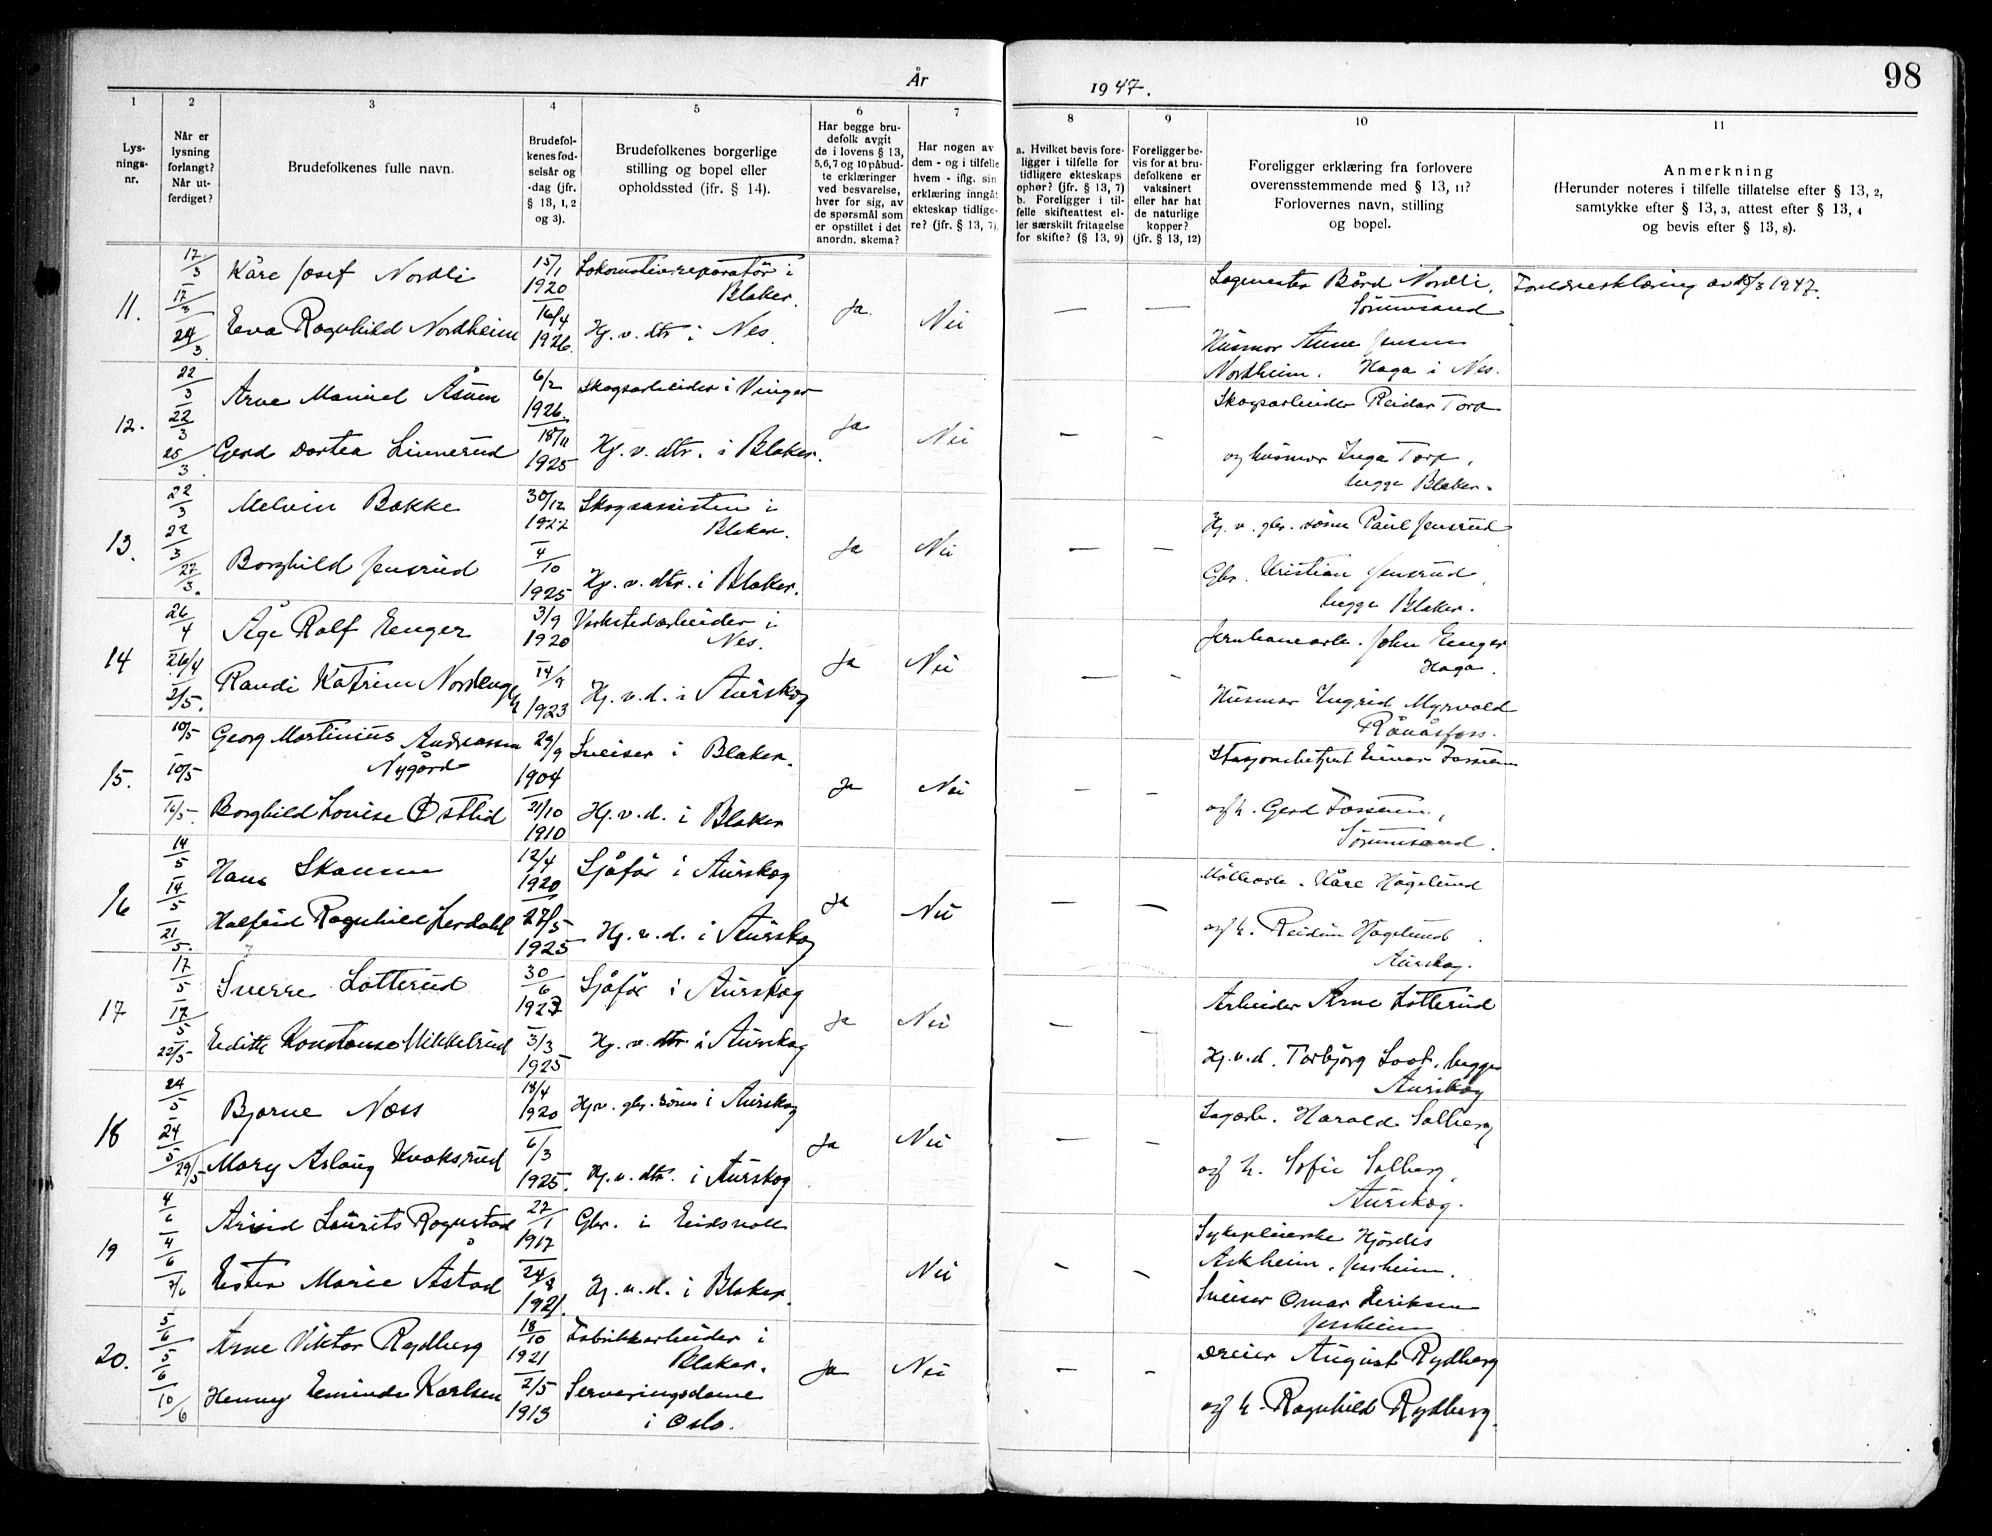 98
År 1947.
1 2 3 4 5 6 7 8 9 10 11
Lys-
nings-
nr.
Når er
lysning
forlangt?
Når ut-
ferdiget?
Brudefolkenes fulle navn.
Brudefol-
kenes fød-
selsår og
-dag (jfr.
§ 13, 1, 2
og 3).
Brudefolkenes borgerlige
stilling og bopel eller
opholdssted (jfr. § 14).
Har begge bru-
defolk avgit
de i lovens § 13,
5,6,7 og 10 påbud-
te erklæringer
ved besvarelse,
hver for sig, av
de spørsmål som
er opstillet i det
anordn. skema?
Har nogen av
dem - og i tilfelle
hvem - iflg. sin
erklæring inngåt
ekteskap tidlige-
re? (jfr. § 13, 7).
a. Hvilket bevis fore-
ligger i tilfelle for
tidligere ekteskaps
ophør? (jfr. § 13, 7)
b. Foreligger i til-
felle skifteattest el-
ler særskilt fritagelse
for skifte? (§ 13, 9)
Foreligger be-
vis for at bru-
defolkene er
vaksinert
eller har hat
de naturlige
kopper?
(jfr. § 13, 12)
Foreligger erklæring fra forlovere
overensstemmende med § 13, 11?
Forlovernes navn, stilling
og bopel.
Anmerkning
(Herunder noteres i tilfelle tillatelse efter § 13, 2,
samtykke efter § 13, 3, attest efter § 13, 4
og bevis efter § 13, 8).
11.
17/3
17/3
24/3
Kåre Josef Nordli
Eva Ragnhild Nordheim
15/1
1920
16/4
1926.
Lokomotivreparatør i
Blaker.
Hj. v. dtr i Nes.
Ja.
Nei
— —
Lagmester Bård Nordli,
Sørumsand
Husmor Anne Jensen
Nordheim. Haga i Nes.
Foreldreerklæring av 15/3 1947.
12.
22/3
22/3
25/3
Arve Manuel Åsnen
Gerd Dortea Linnerud
6/2
1926.
18/11
1925
Skogsarbeider i Vinger
Hj. v. dtr. i Blaker.
Ja
Nei
— —
Skogsarbeider Reidar Torp
og husmor Inga Torp,
begge Blaker.
13.
22/3
22/3
27/3.
Melvin Bakke
Borghild Jensrud
30/12
1922
4/10
1925
Skogsassistent i
Blaker.
Hj. v. dtr. i Blaker.
Ja
Nei
— —
Hj. v. gbr. sønn Paul Jensrud
Gbr. Kristian Jensrud,
begge Blaker.
14
26/4
26/4
2/5.
Åge Rolf Enger
Randi Katrine Nordengen
3/9
1920
14/9
1923
Verkstedarbeider i
Nes.
Hj. v. d. i Aurskog
Ja
Nei
— —
Jernbanearb. John Enger
Haga.
Husmor Ingrid Myrvold
Rånåsfoss.
15.
10/5
10/5
16/5
Georg Martinius Andreassen
Nygård
Borghild Lovise Østlid
29/9
1904
21/10
1910
Sveiser i Blaker.
Hj. v. d. i Blaker
Ja
Nei
— —
Stasjonsbetjent Einar Fossum
og h. Gerd Fossum,
Sørumsand.
16
14/5
14/5
21/5.
Hans Skansen
Halfrid Ragnhild Lerdahl
12/4
1920
27/5
1925
Sjåfør i Aurskog
Hj. v. d. i Aurskog
Ja
Nei
— —
Møllearb. Kåre Høgelund
og h. Reidun Høgelund
Aurskog.
17
17/5
17/5
22/5
Sverre Lotterud
Edith Konstanse Mikkelrud
30/6
1923
3/3
1925
Sjåfør i Aurskog
Hj. v. dtr. i Aurskog
Ja
Nei
— —
Arbeider Arne Lotterud
Hj. v. d. Torbjørg Loof, begge
Aurskog
18
24/5
24/5
29/5
Bjarne Næss
Mary Aslaug Kvaksrud
18/4
1920
6/3
1925.
Hj. v. gbr. sønn i Aurskog
Hj. v. dtr. i Aurskog
Ja
Nei
— —
Sagarb. Harald Solberg
og h. Sofie Solberg,
Aurskog.
19
4/6
4/6
7/6
Arvid Laurits Rognstad
Ester Marie Åstad
27/1
1917
24/8
1921.
Gbr. i Eidsvoll
Hj. v. d. i Blaker.
Nei
— —
Sykepleierske Hjørdis
Askheim, Jessheim.
Sveiser Omar Eriksen
Jessheim
20.
5/6
5/6
10/6
Arne Viktor Rydberg
Henny Eminde Karlsen
18/10
1921
2/5
1913
Fabrikkarbeider i
Blaker.
Serveringsdame
i Oslo.
Ja
Nei
— —
Dreier August Rydberg
og h. Ragnhild Rydberg.